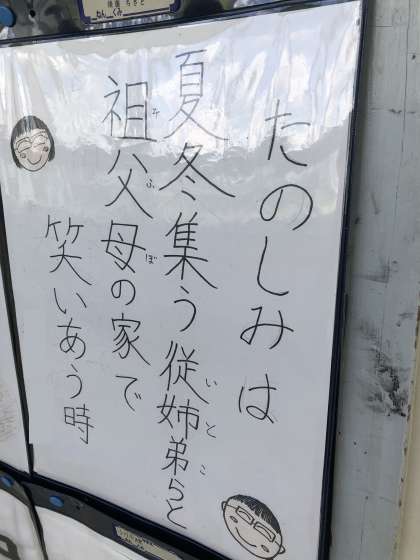 たのしみは
夏冬集う従姉弟らと
祖父母の家で
笑いあう時